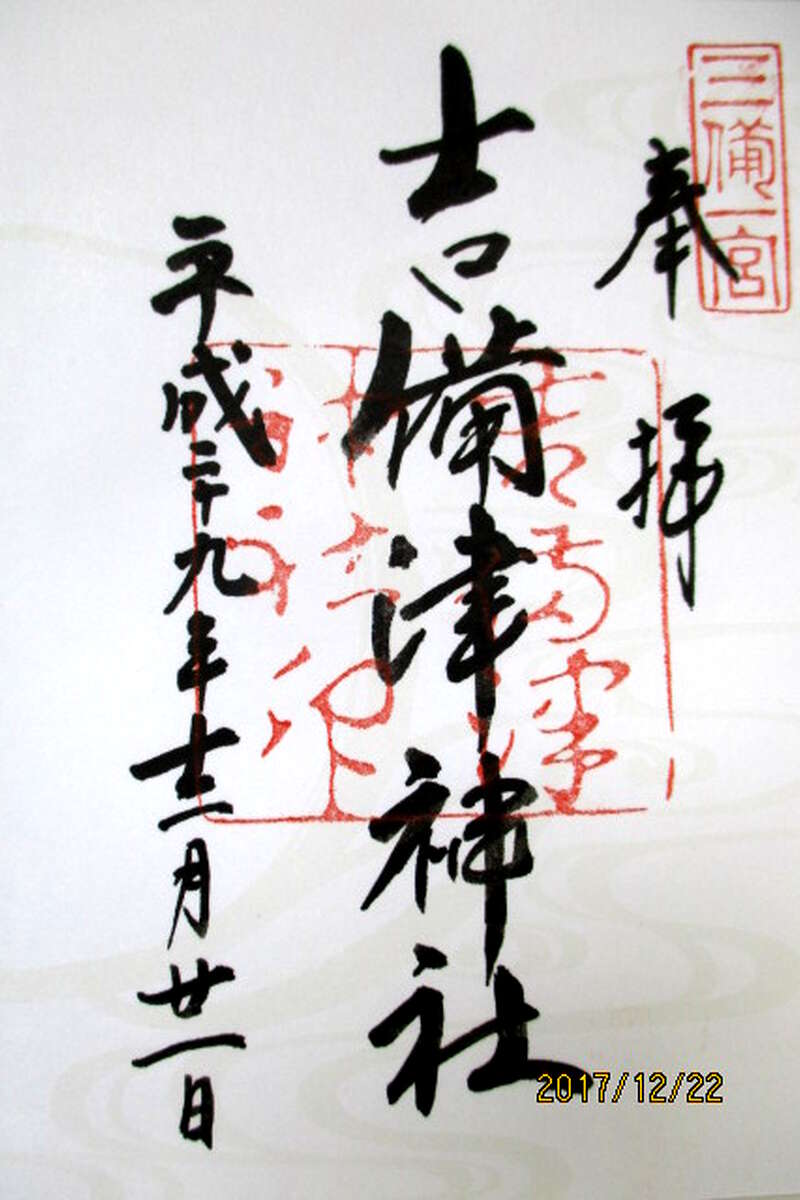 三備一宮
奉拝
吉備津神社
平成二十九年十二月廿一日
2017/12/22